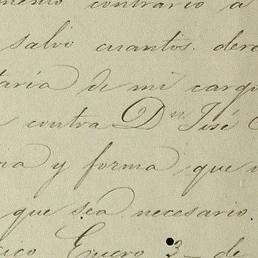 contrario a
salvo cuantos dere
taria de mi carg
contra Dn José
na y forma que
que sea necesario.
ico Enero 3 de